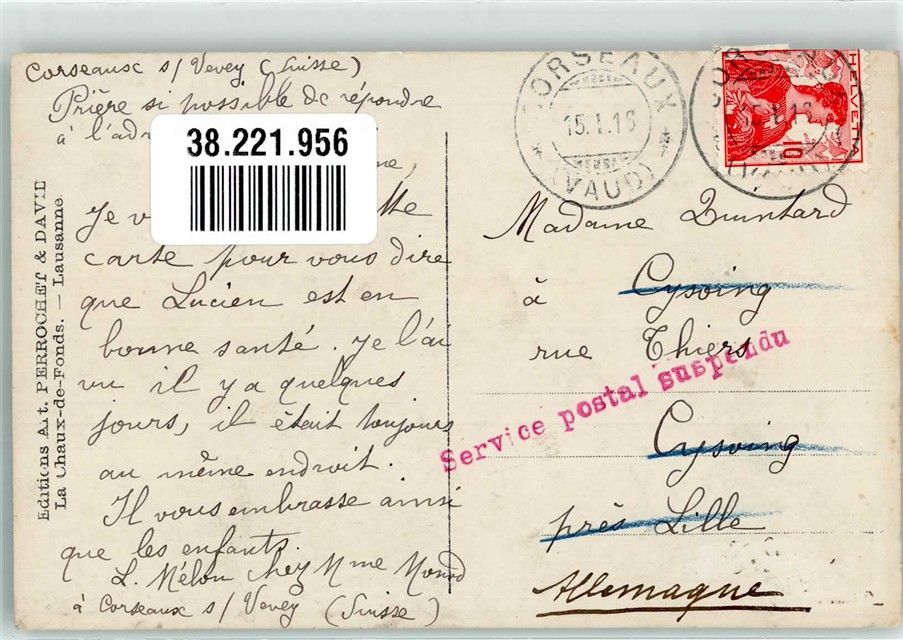 Corseaux s/ Vevey (Suisse)
Prière si possible de répondre
à l'adr
38.221.956
me,
Je v tte
carte pour vous dire
que Lucien est en
bonne santé. Je l'ai
vu il y a quelques
jours, il était toujours
au même endroit.
Il vous embrasse ainsi
que les enfants.
L. Mélon chez Mme Monod
à Corseaux s/ Vevey (Suisse)
Editions Art. PERROCHET & DAVID
La Chaux-de-Fonds. — Lausanne.
CORSEAUX
15.I.16
(VAUD)
CORSEAUX
15.I.16
(VAUD)
HELVETIA
10
Madame Quintard
à Cysoing
rue Thiers
Service postal suspendu
Cysoing
près Lille
Allemagne